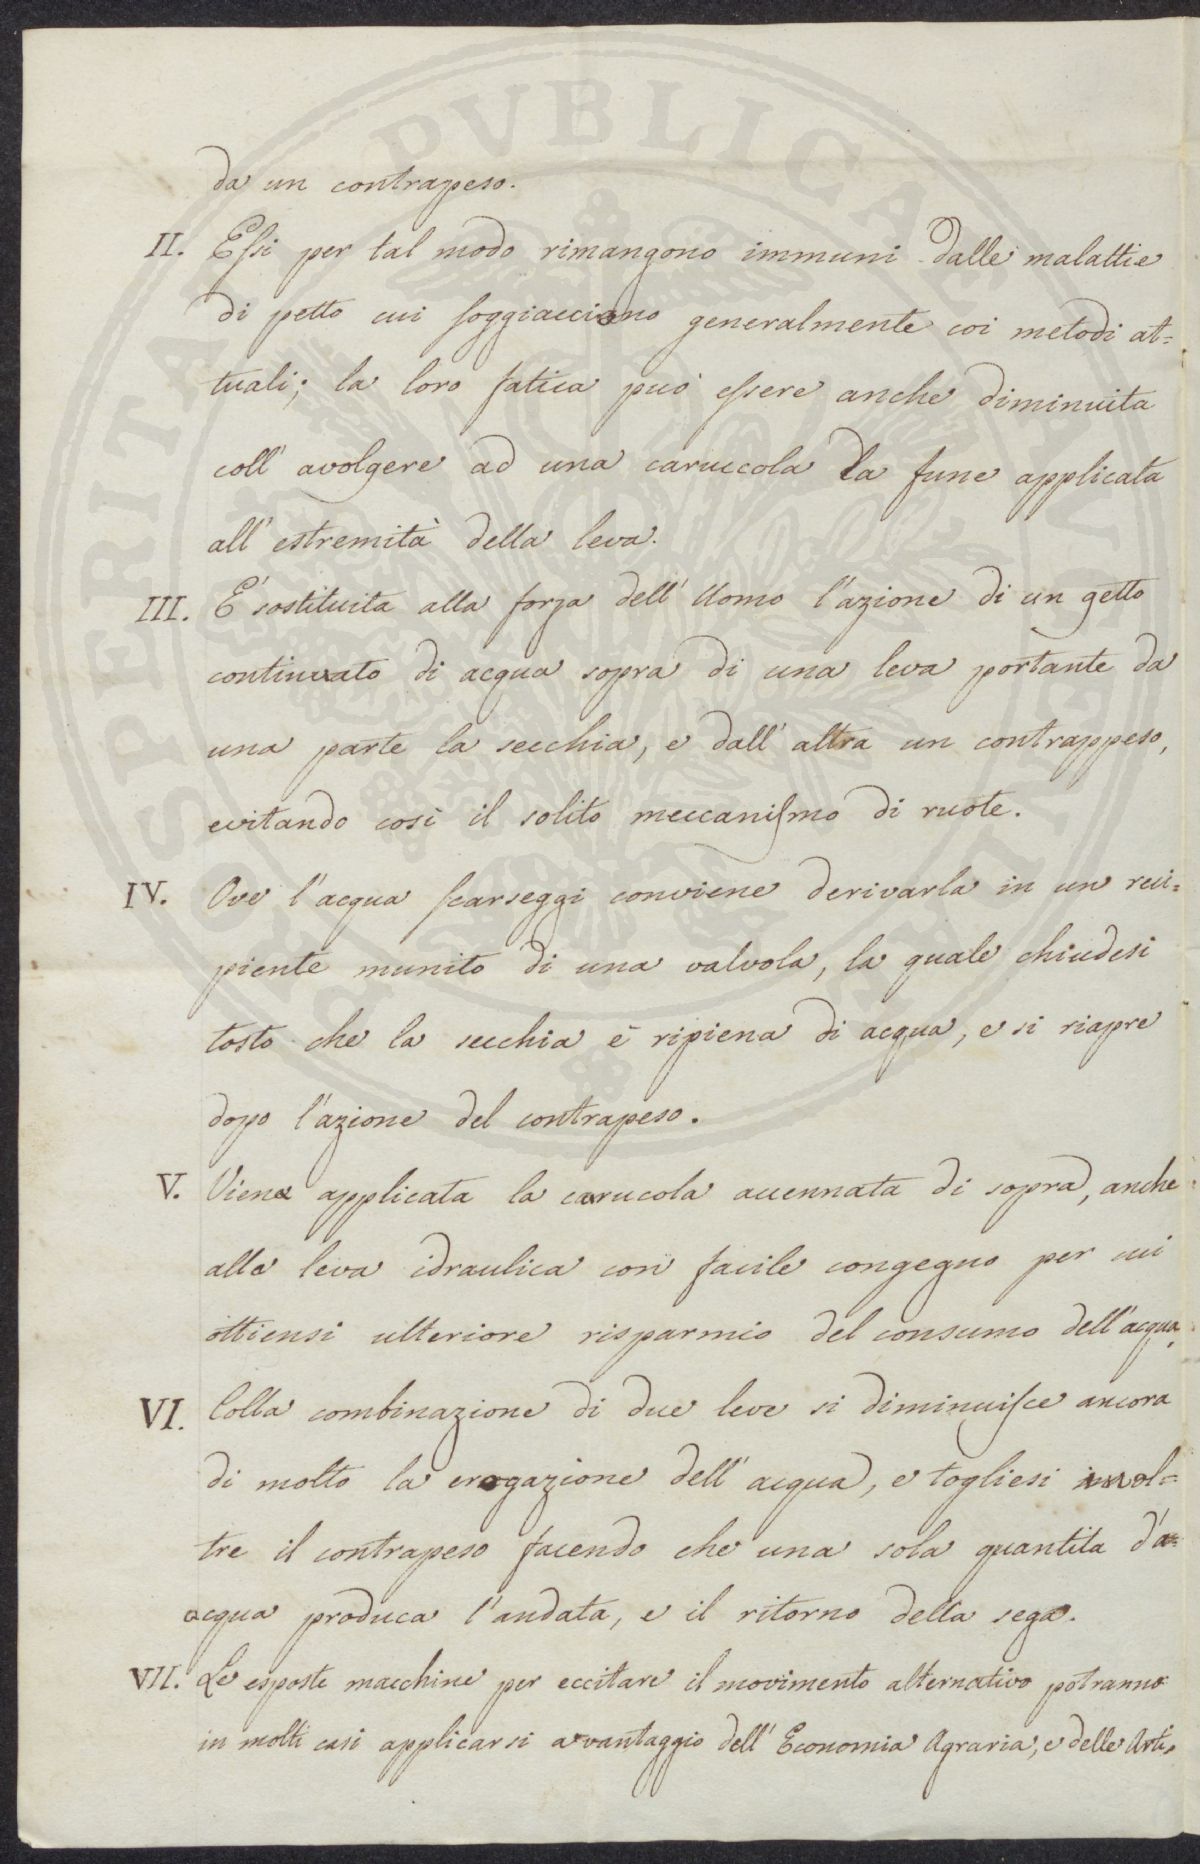 PROSPERITATI PVBLICAE AVGENDAE
da un contrapeso.
II. Essi per tal modo rimangono immuni dalle malattie
di petto cui soggiacciono generalmente coi metodi at=
tuali; la loro fatica può essere anche diminuita
coll' avolgere ad una caruccola la fune applicata
all' estremità della leva.
III. E' sostituita alla forza dell' Uomo l'azione di un getto
continuato di acqua sopra di una leva portante da
una parte la secchia, e dall' altra un contrappeso,
evitando così il solito meccanismo di ruote.
IV. Ove l'acqua scarseggi conviene derivarla in un reci=
piente munito di una valvola, la quale chiudesi
tosto che la secchia è ripiena di acqua, e si riapre
dopo l'azione del contrapeso.
V. Viene applicata la carucola accennata di sopra, anche
alla leva idraulica con facile congegno per cui
ottiensi ulteriore risparmio del consumo dell'acqua.
VI. Colla combinazione di due leve si diminuisce ancora
di molto la erogazione dell' acqua, e togliesi inol=
tre il contrapeso facendo che una sola quantita d'a=
acqua produca l'andata, e il ritorno della sega.
VII. Le esposte macchine per eccitare il movimento alternativo potranno
in molti casi applicarsi a vantaggio dell' Economia Agraria, e delle Arti.